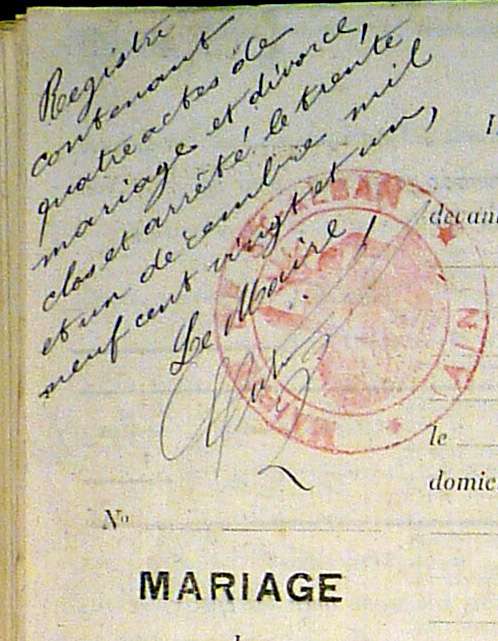 Registre
contenant
quatre actes de
mariage et divorce,
clos et arrêté le trente
et un décembre mil
neuf cent vingt et un,
Le Maire,
AIN
devant
le
domic
N°
MARIAGE